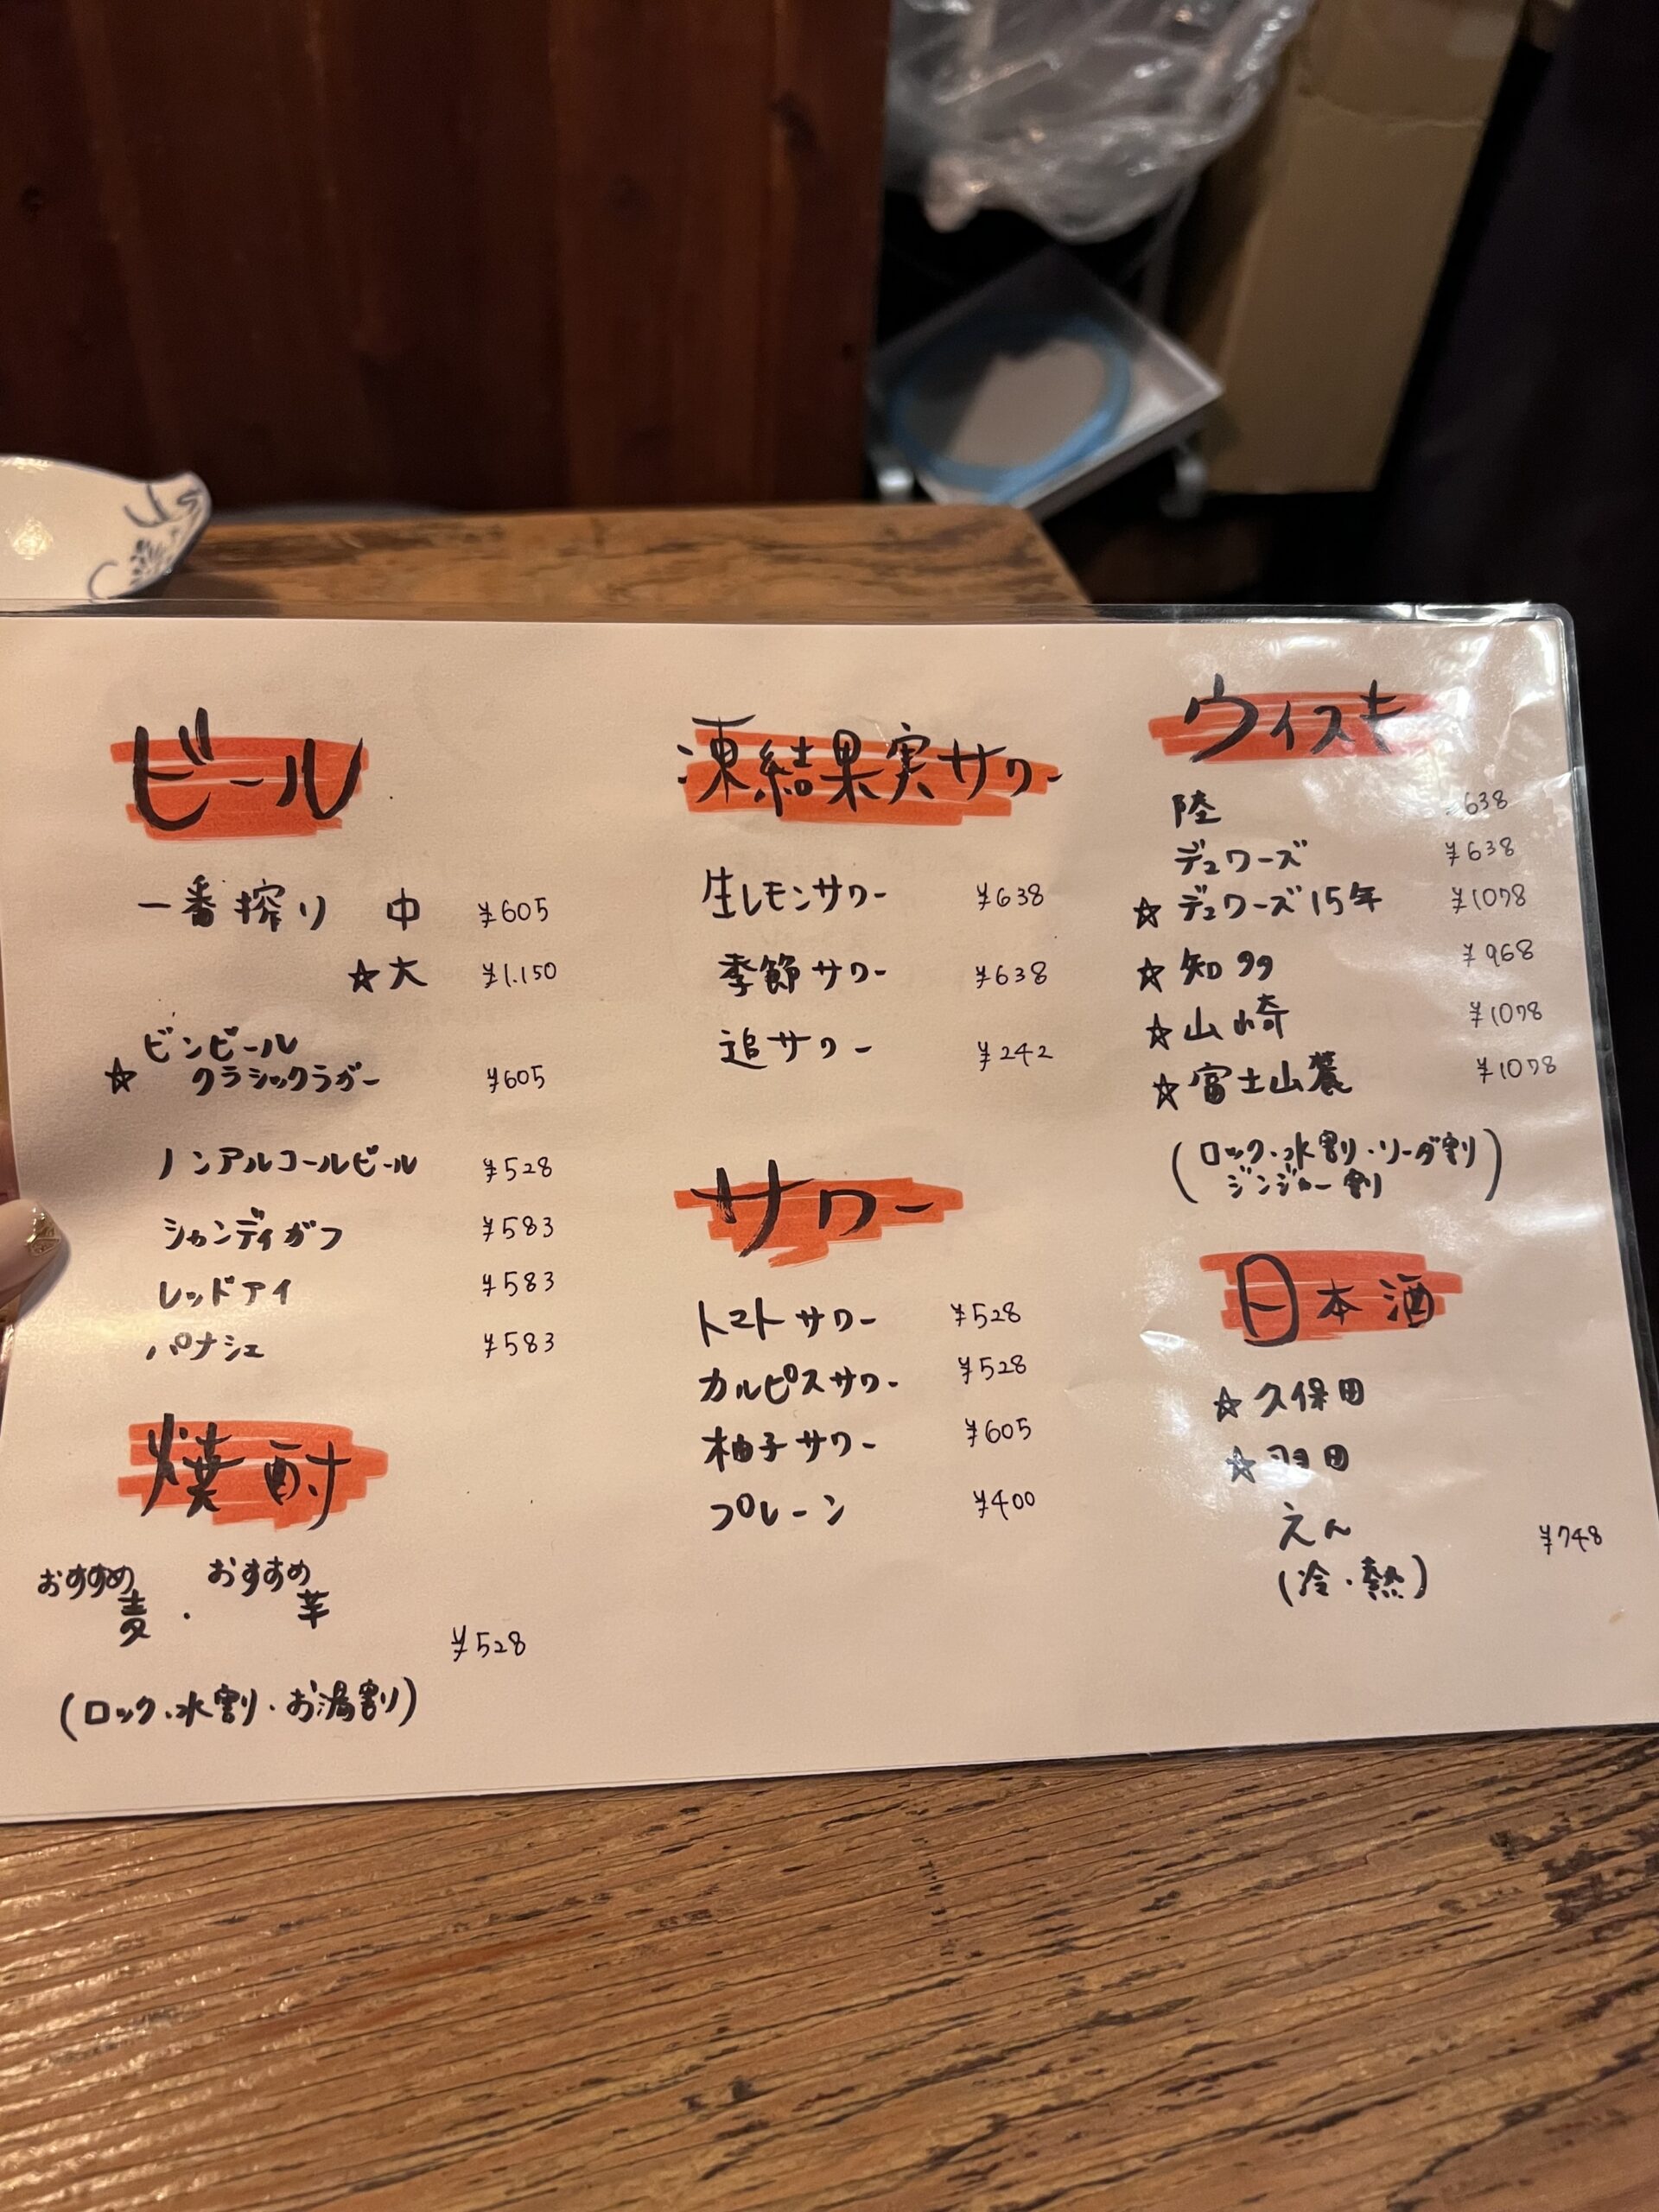 ビール
一番搾り 中 ¥605
☆大 ¥1.150
ビンビール
☆ クラシックラガー ¥605
ノンアルコールビール ¥528
シャンディガフ ¥583
レッドアイ ¥583
パナシェ ¥583
焼酎
おすすめ おすすめ
麦・芋
¥528
(ロック・水割り・お湯割り)
凍結果実サワー
生レモンサワー ¥638
季節サワー ¥638
追サワー ¥242
サワー
トマトサワー ¥528
カルピスサワー ¥528
柚子サワー ¥605
プレーン ¥400
ウイスキ
陸 638
デュワーズ ¥638
☆デュワーズ15年 ¥1078
☆知多 ¥968
☆山崎 ¥1078
☆富士山麓 ¥1078
(ロック・水割り・ソーダ割り
ジンジャー割)
日本酒
☆久保田
☆ 田
えん ¥748
(冷・熱)